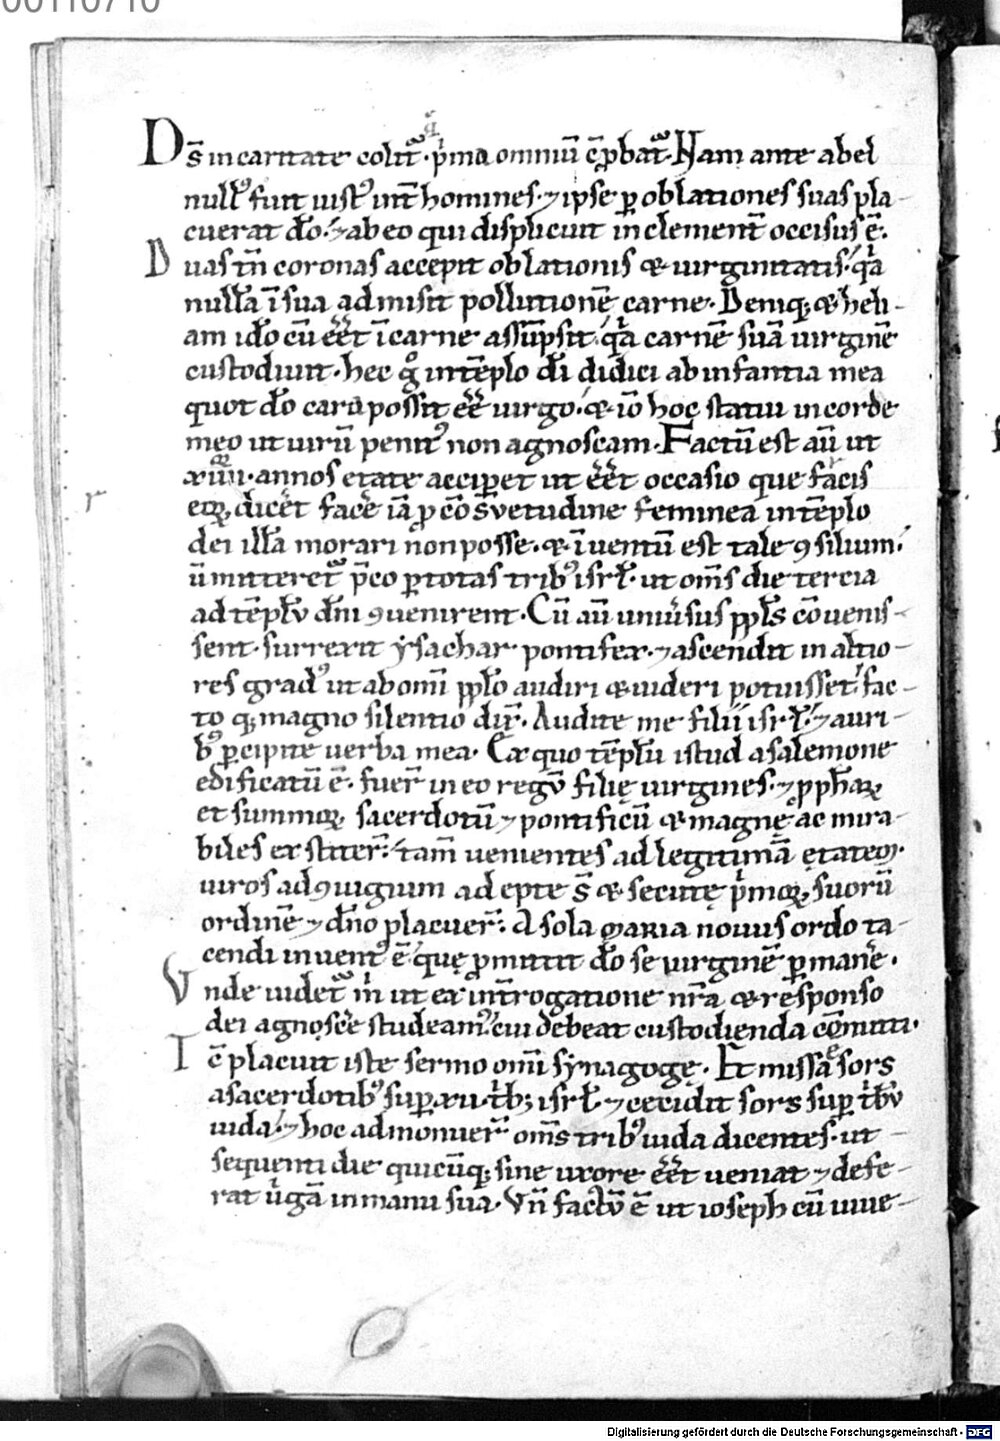 00110710
Ds̄ in caritate colit᷑. p̄ma omniū cp̄bat᷑. Nam ante abel
null᷒ fuit iust᷒ int̄ homines. ⁊ ipse ꝑ oblationes suas pla-
cuerat dō. ⁊ ab eo qui displicuit inclement̄ occisus ē.
Duas tn̄ coronas accepit oblationis & uirginitatis. qͥa
nullā ī sua admisit pollutionē carne. Deniq; & heli-
am ido cū eēt ī carne assūpsit. qͥa carnē suā uirginē
custodiuit. hec gͦ in tēplo dī didici ab infantia mea
quot dō cara possit eē uirgo. & iō hoc statui in corde
meo ut uirū penit᷒ non agnoscam. Factū est aū ut
xiiii. annos etate acciperet ut eēt occasio que facis
diceret facēe iā ꝓ cōsvetudine feminea in tēplo
dei illā morari non posse. & īuentū est tale ꝯsilium.
ū mitteret᷑ p̄co ꝑ totas trib᷒ isrł. ut om̄s die tercia
ad tēplv dn̄i ꝯuenirent. Cū aū uniu̓sus ppl̄s cōuenis-
sent. surrexit ysachar pontifex. ⁊ ascendit in altio-
res grad᷒ ut ab omī pplō audiri & uideri potuisset. fac-
to q; magno silentio dix̄. Audite me filii isrł. ⁊ auri-
b᷒ ꝑcipite uerba mea. Ex quo tēplū istud a salemone
edificatū ē. fuer̄ in eo regū filię uirgines. ⁊ ꝓphaꝝ
et summoꝝ sacerdotū ⁊ pontificū & magnę ac mira-
biles exstiter̄. tam̄ uenientes ad legitimā ętatem.
uiros ad ꝯiugium adepte s̄ & secutę p̄moꝝ suorū
ordinē ⁊ dn̄o placuer̄. A sola maria nouus ordo ta-
cendi inuent᷒ ē. quę ꝓmittit dō se uirginē ꝑmanēe.
Vnde uidet᷑ mͥ ut ex int̄rogatione nr̄a & responso
dei agnoscēe studeam᷒. cui debeat custodienda cōmitti.
Tc̄ placuit iste sermo omī synagogę. Et missa ē sors
a sacerdotib᷒ suꝑ xii. tͥb; isrł. ⁊ cecidit sors suꝑ tͥbv
iuda. ⁊ hoc admonuer̄ om̄s trib᷒ iuda dicentes. ut
sequenti die quicūq; sine uxore eēt ueniat ⁊ defe-
rat u̓gā in manu sua. Vn̄ factū ē ut ioseph cū iuue-
Digitalisierung gefördert durch die Deutsche Forschungsgemeinschaft - DFG